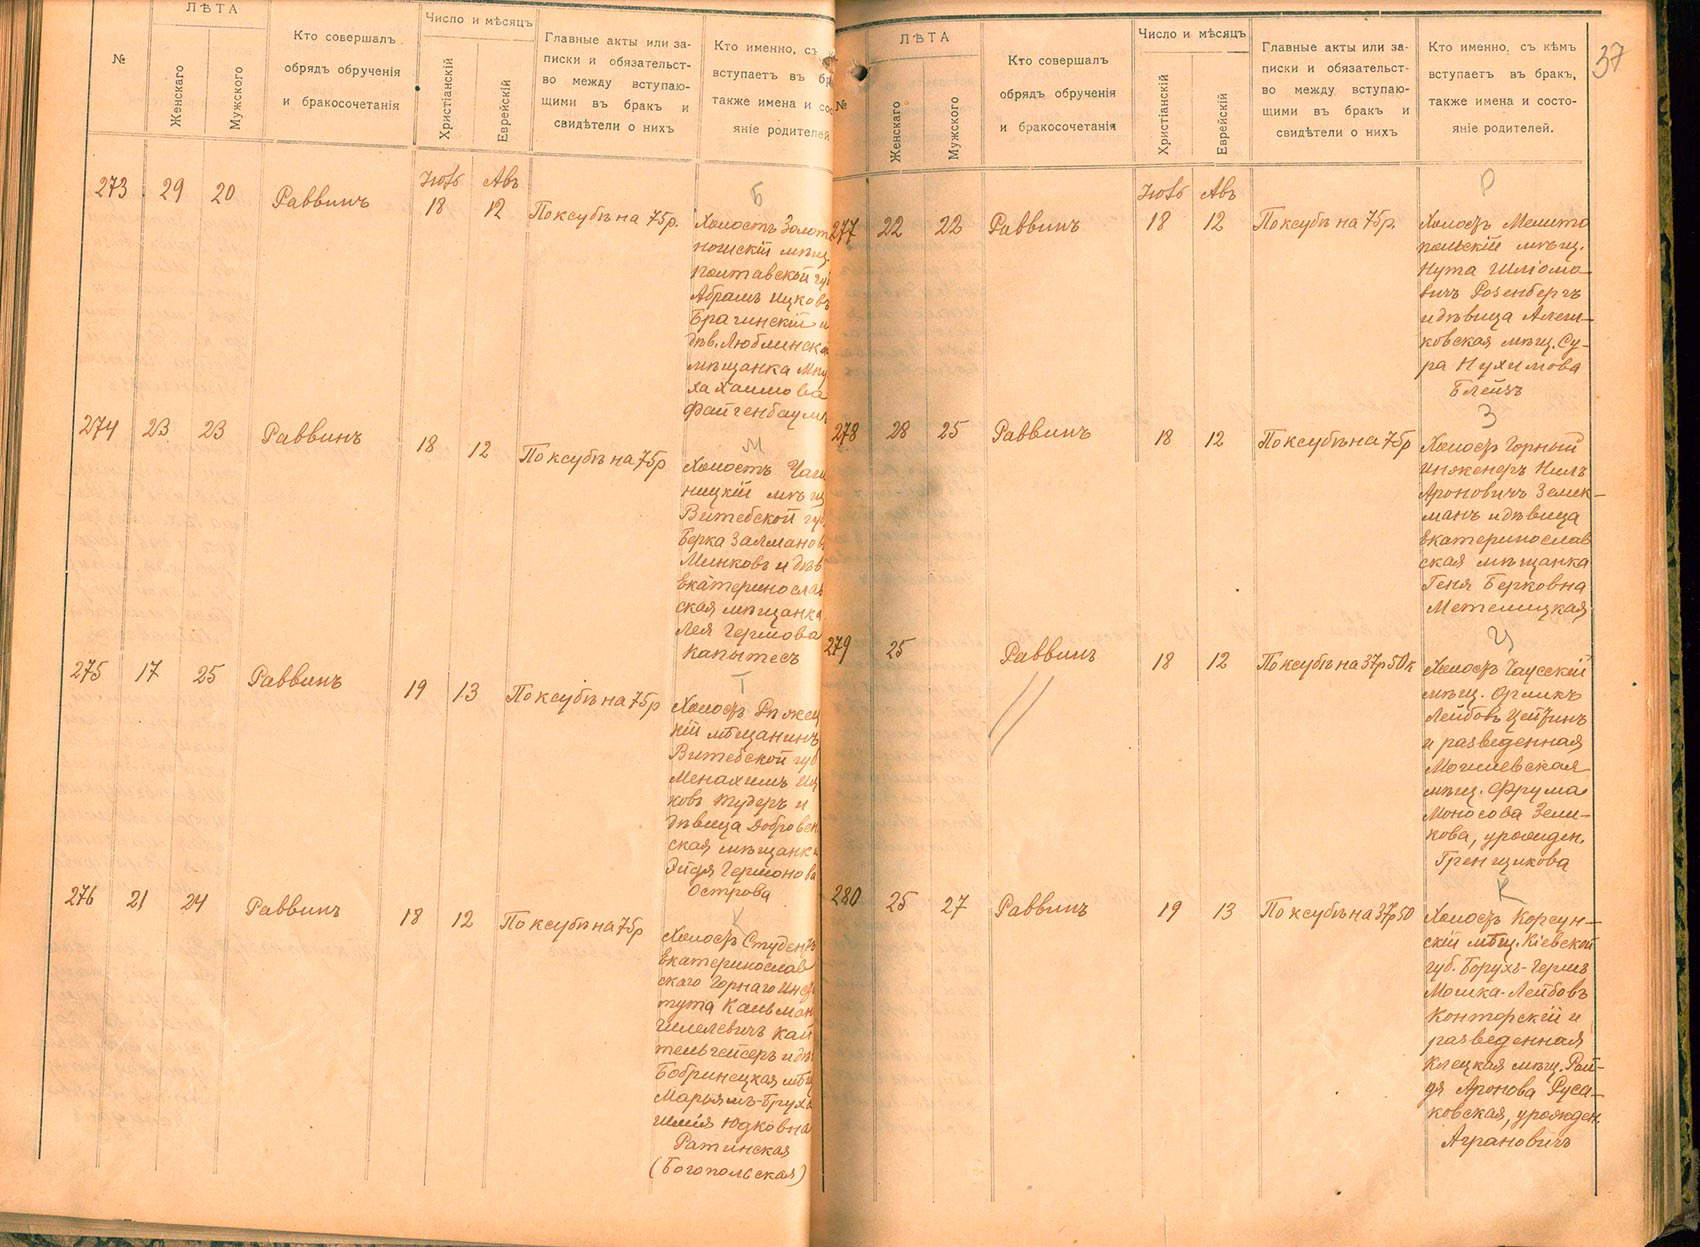 ЛѢТА
Число и мѣсяцъ
№
Женскаго
Мужского
Кто совершалъ
обрядъ обрученія
и бракосочетанія
Христіанскій
Еврейскій
Главные акты или за-
писки и обязательст-
во между вступаю-
щими въ бракъ и
свидѣтели о нихъ
Кто именно, съ
вступаетъ въ бр
также имена и со
яніе родителей
273 29 20 Раввинъ
Авъ
18 12 По ксубѣ на 75р.
Б
Холостъ Золот
ношскій мѣщ
Полтавской гу
Абрамъ Ицковъ
Брагинскій и
дѣв. Люблинск
мѣщанка
ха Хаимова
Файгенбаум
274 23 23 Раввинъ 18 12 По ксубѣ на 75р
М
Холостъ
ницкій мѣщ
Витебской гу
Берка Залманов
Минковъ и дѣв
Екатеринослав
ская мѣщанка
Лея Гершова
Капытесъ
275 17 25 Раввинъ 19 13 По ксубѣ на 75р
Т
Холостъ Рѣжец
кій мѣщанинъ
Витебской губ
Менахимъ Иц
ковъ Тудеръ и
дѣвица Добровен
ская мѣщанка
Эйдя Гершонова
Острова
276 21 24 Раввинъ 18 12 По ксубѣ на 75р
К
Холостъ Студентъ
Екатеринослав
скаго Горнаго Инсти
тута Кальман
Шлелевичъ Кай
тельгейсеръ и дѣ
Бобринецкая мѣщ
Марьямъ-Брух
Юдковна
Ратинская
(Богопольская)
37
№
ЛѢТА
Число и мѣсяцъ
Женскаго
Мужского
Кто совершалъ
обрядъ обрученія
и бракосочетанія
Христіанскій
Еврейскій
Главные акты или за-
писки и обязательст-
во между вступаю-
щими въ бракъ и
свидѣтели о нихъ
Кто именно, съ кѣмъ
вступаетъ въ бракъ,
также имена и состо-
яніе родителей.
Авъ
277 22 22 Раввинъ 18 12 По ксубѣ на 75р.
Р
Холостъ Мелито
польскій мѣщ.
Нута Шліомо-
вичъ Розенбергъ
и дѣвица Алеш-
ковская мѣщ. Су-
ра Нухимова
Блейзъ
278 28 25 Раввинъ 18 12 По ксубѣ на 75р
З
Холостъ Горный
инженеръ Нилъ
Ароновичъ Зелик-
манъ и дѣвица
Екатеринослав
ская мѣщанка
Геня Берковна
Метелицкая
279 25 Раввинъ 18 12 По ксубѣ на 37р50к
Ц
Холостъ Чаусскій
мѣщ.
Лейбовъ Цейтлинъ
и разведенная
Могилевская
мѣщ. Фрума
Моносова Зели-
кова, урожден.
Гренщикова
280 25 27 Раввинъ 19 13 По ксубѣ на 37р50
К
Холостъ Корсун-
скій мѣщ. Кіевской
губ. Борухъ-Гершъ
Мошка-Лейбовъ
Конторскій и
разведенная
Клецкая мѣщ. Рай-
дя Аронова Руса-
ковская, урожден.
Аграновичъ